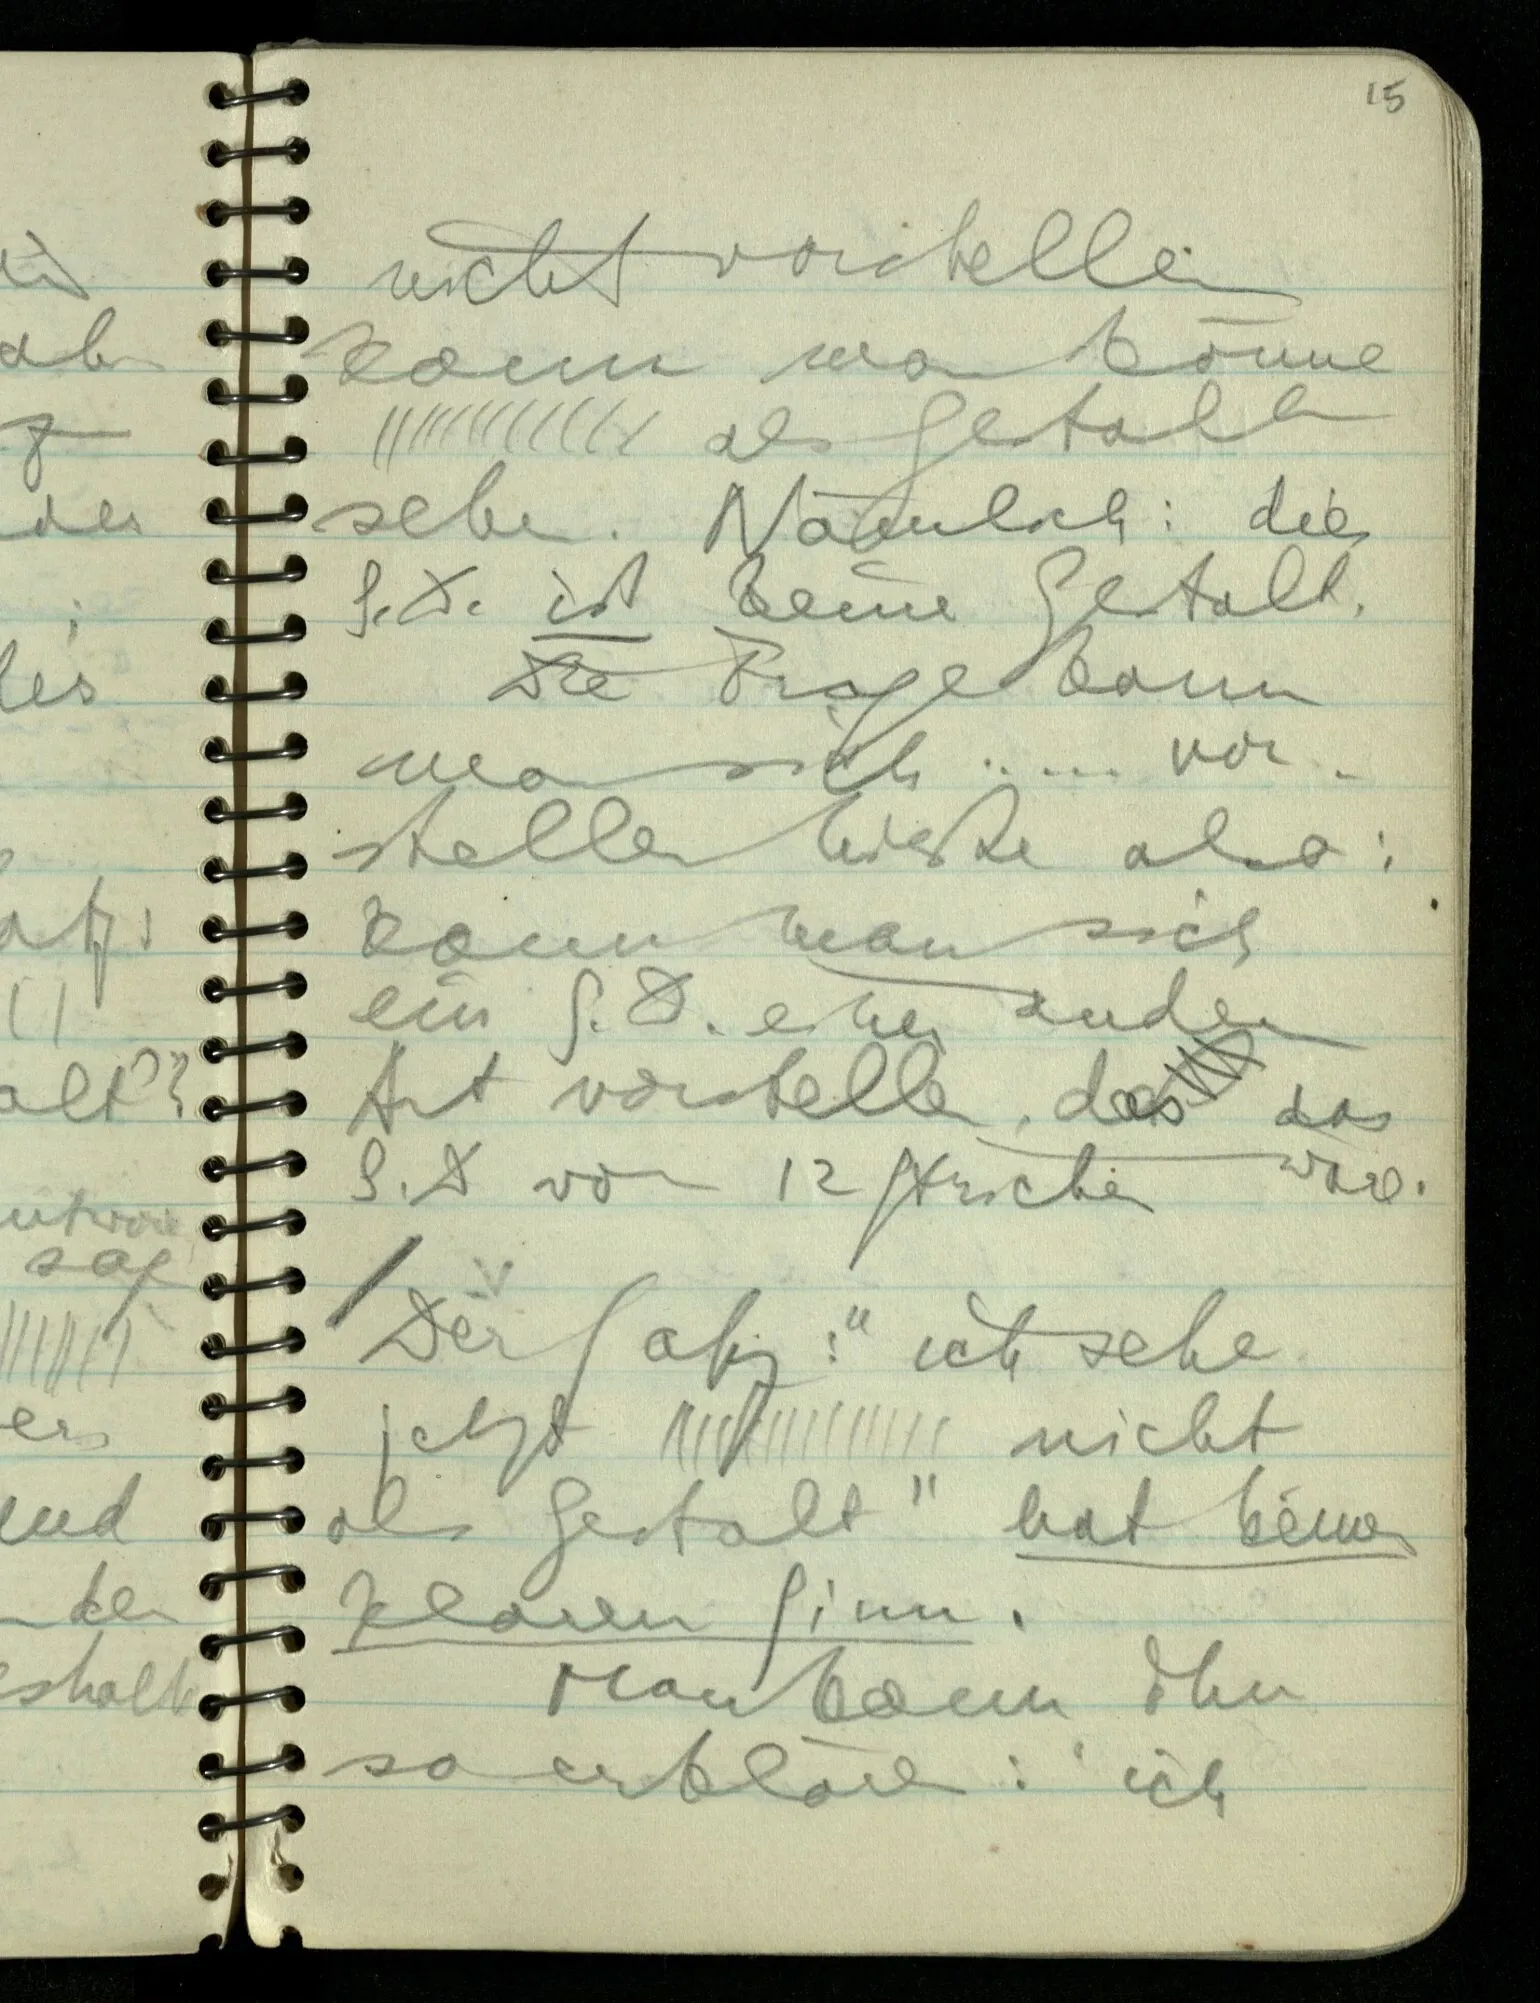 15
nicht vorstellen
kann man könne
|||||||||||| als Gestalt
sehen. Nämlich: dies
S.D. ist keine Gestalt.
Die Frage kann
man sich ..... vor-
stellen hieße also:
kann man sich
ein S.D. einer anderen
Art vorstellen, das das
S.D von 12 Strichen wäre.
Der Satz: "ich sehe
jetzt |||||||||||| nicht
als Gestalt" hat keinen
klaren Sinn.
Man kann ihn
so erklären: ich